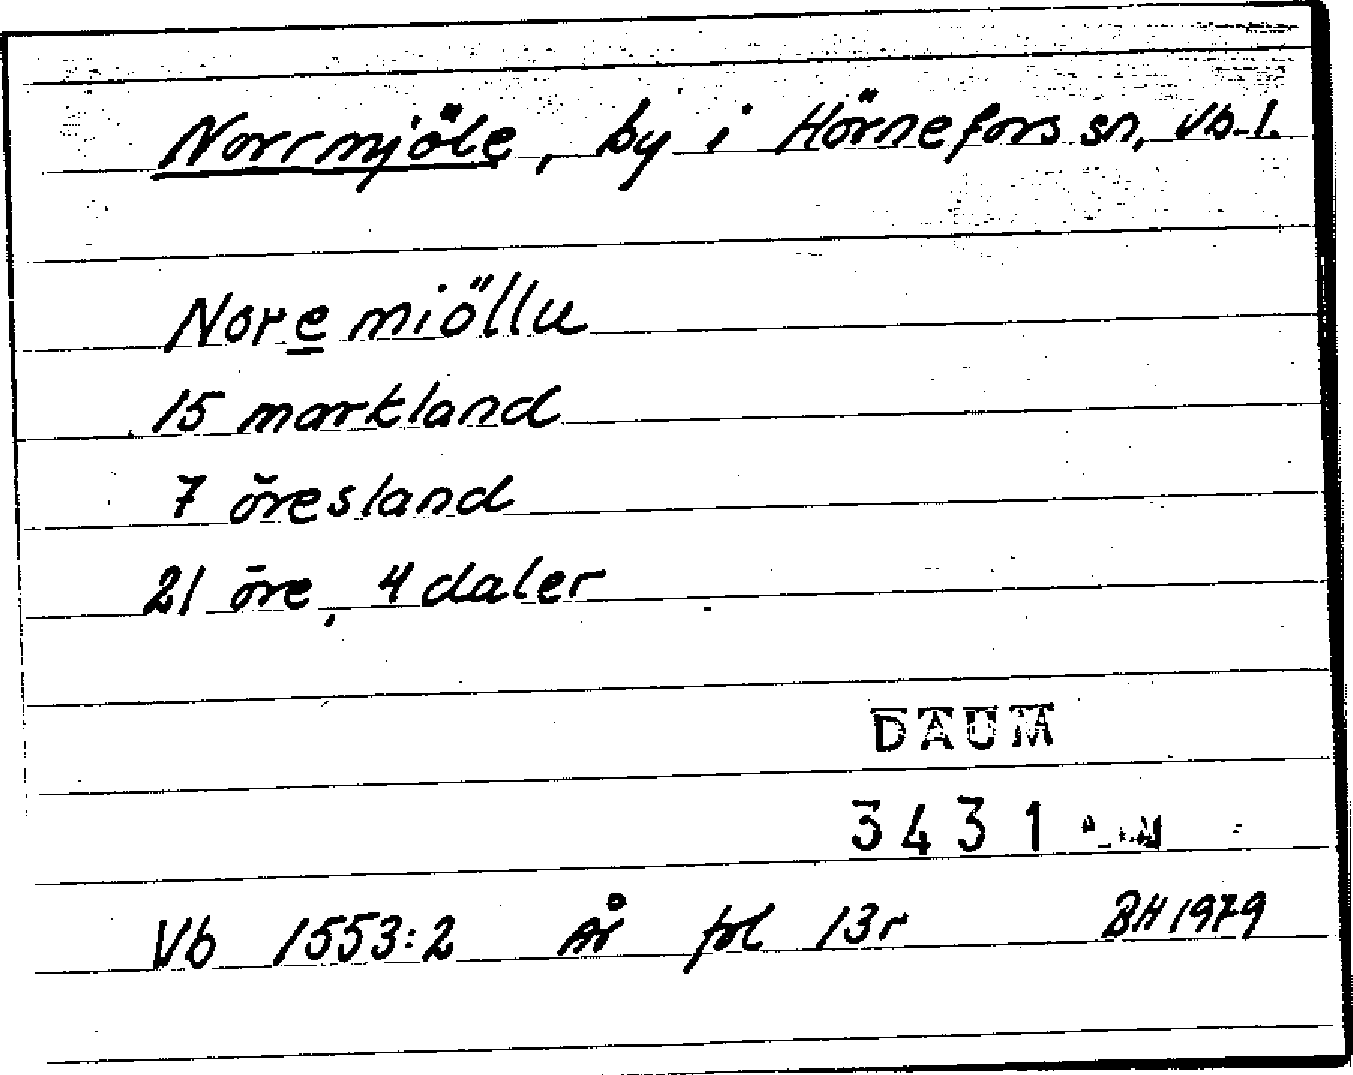 Norrmjöle, by i Hörnefors sn, Vb.l.
Noremiöllu
15 markland
7 öresland
21 öre, 4 daler
DAUM
3431
Vb 1553:2 År fol 13r BH 1979